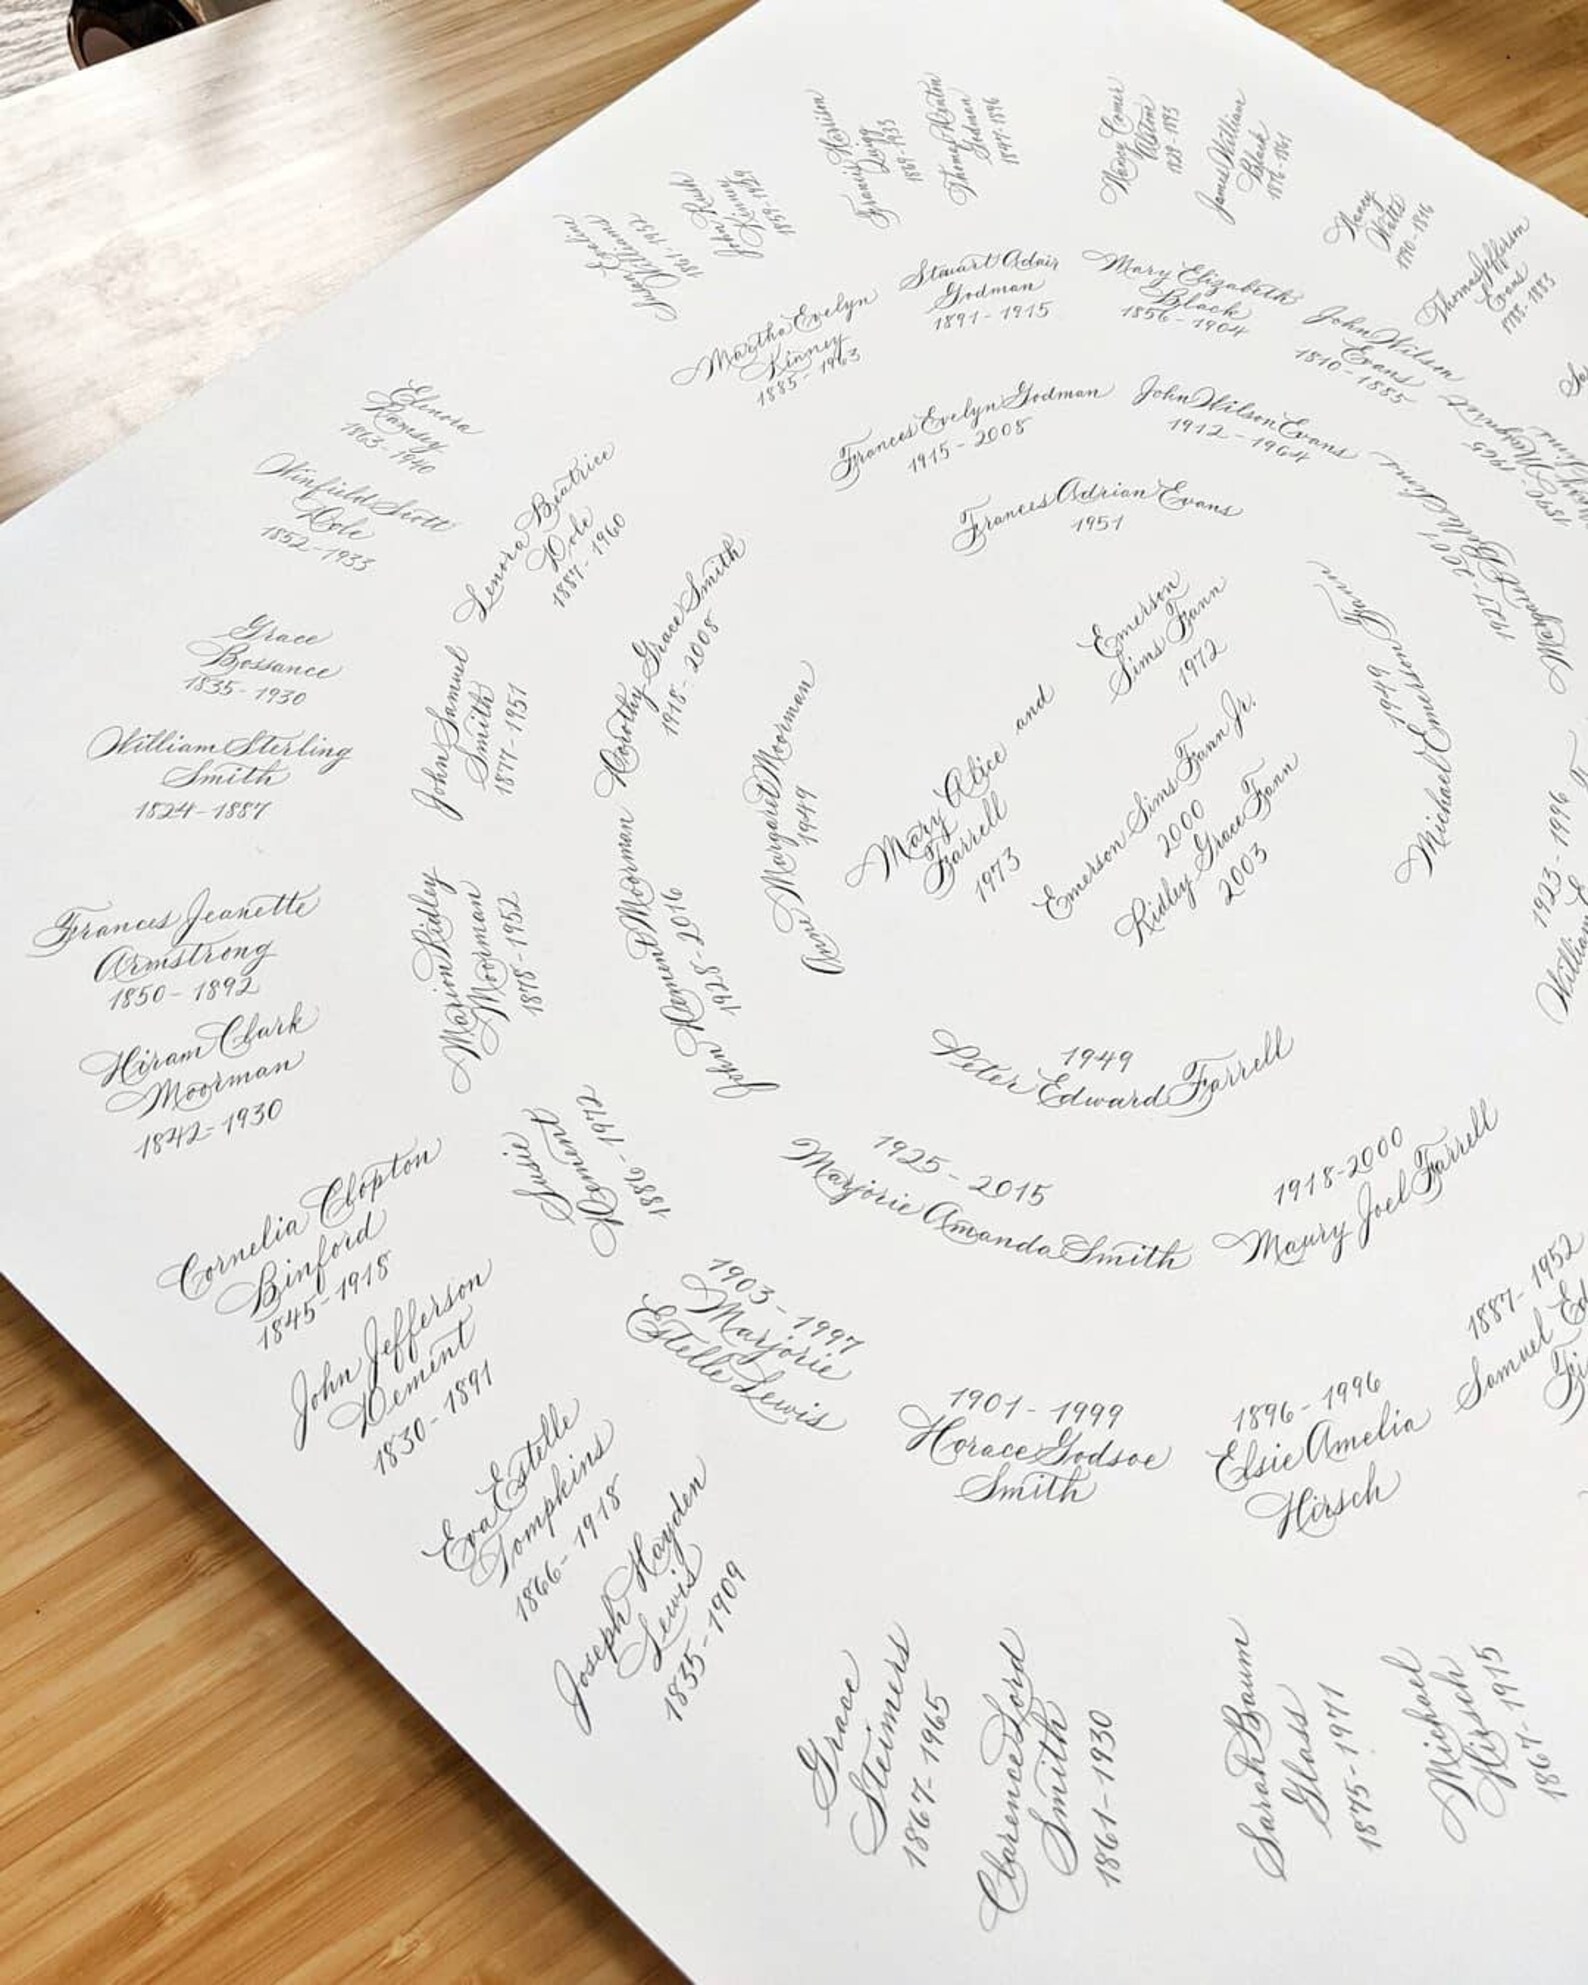 Francis Harrison
1869-1933
Thomas Heaton
Godman
1847-1896
Nancy Comer
1829-1893
James William
Black
Nancy
Watts
1790-1876
Thomas Jefferson
Evans
1788-1883
Susan Emeline
Williams
1861-1952
John Rush
Kinney
1859-1929
Stewart Adair
Godman
1891-1915
Mary Elizabeth
Black
1856-1904
Martha Evelyn
Kinney
1885-1963
John Wilson
Evans
1810-1885
Frances Evelyn Godman
1915-2008
John Wilson Evans
1912-1964
Frances Adrian Evans
1951
Elenora
Ramsey
1863-1940
Winfield Scott
Dole
1852-1933
Lenora Beatrice
Dole
1887-1960
Grace
Bossance
1835-1930
William Sterling
Smith
1824-1887
John Samuel
Smith
1877-1951
Dorothy Grace Smith
1918-2008
Anne Margaret Moorman
1949
Emerson
Sims Fann
1972
and
Mary Alice
Farrell
1973
Emerson Sims Fann Jr.
2000
Ridley Grace Fann
2003
1949
Michael Emerson Fann
1927-2001
1923-1996
William
Frances Jeanette
Armstrong
1850-1892
Hiram Clark
Moorman
1842-1930
Marion Ridley
Moorman
1878-1952
John Dement Moorman
1928-2016
Susie
Dement
1886-1972
1949
Peter Edward Farrell
1925-2015
Marjorie Amanda Smith
1918-2000
Maury Joel Farrell
Cornelia Clopton
Binford
1845-1918
John Jefferson
Dement
1830-1891
1903-1997
Marjorie
Estelle Lewis
1901-1999
Horace Godsoe
Smith
1896-1996
Elsie Amelia
Hirsch
1887-1952
Samuel
Eva Estelle
Tompkins
1866-1918
Joseph Hayden
Lewis
1835-1909
Grace
Steimers
1867-1965
Clarence Lord
Smith
1861-1930
Sarah Baum
Glass
1875-1971
Michael
Hirsch
1867-1915